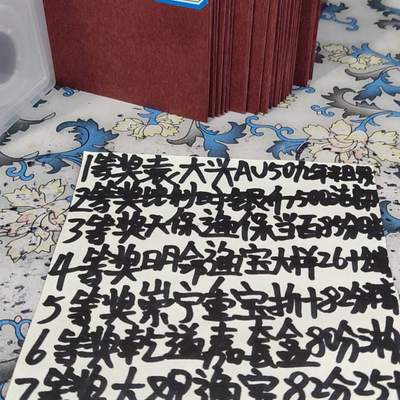 1等奖袁大头AU50
2等奖比利时银币500法郎
3等奖天保通保当百85分
4等奖明命通宝大样26+
5等奖崇宁重宝折十82分
6等奖乾道嘉套盒80分
7等奖大观通宝82分25+